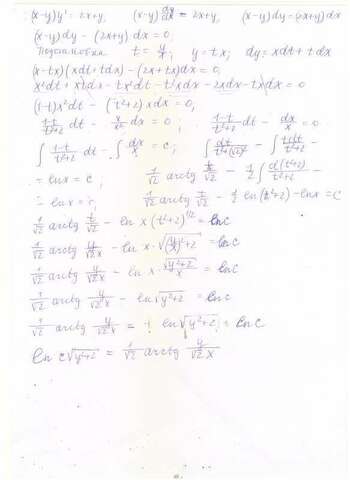 (x-y)y' = 2x+y, (x-y) dy/dx = 2x+y, (x-y)dy=(2x+y)dx
(x-y)dy - (2x+y)dx = 0.
Подстановка t = y/x; y = tx; dy = xdt + tdx
(x-tx)(xdt+tdx) - (2x+tx)dx = 0;
x²dt + xtdx - tx²dt - t²xdx - 2xdx - txdx = 0
(1-t)x²dt - (t²+2)xdx = 0;
(1-t)/(t²+2) dt - x/x² dx = 0; (1-t)/(t²+2) dt - dx/x = 0
∫ (1-t)/(t²+2) dt - ∫ dx/x = c; ∫ dt/(t²+(√2)²) - ∫ tdt/(t²+2) -
- lnx = c; 1/√2 arctg t/√2 - 1/2 ∫ d(t²+2)/(t²+2) -
- lnx = c; 1/√2 arctg t/√2 - 1/2 ln(t²+2) - lnx = C
1/√2 arctg t/√2 - ln x(t²+2)^1/2 = lnC
1/√2 arctg y/√2x - ln x·√((y/x)²+2) = lnC
1/√2 arctg y/√2x - ln x √(y²+2)/x = lnC
1/√2 arctg y/√2x - ln√(y²+2) = lnC
1/√2 arctg y/√2x = ln√(y²+2) = lnC
ln c√(y²+2) = 1/√2 arctg y/√2x